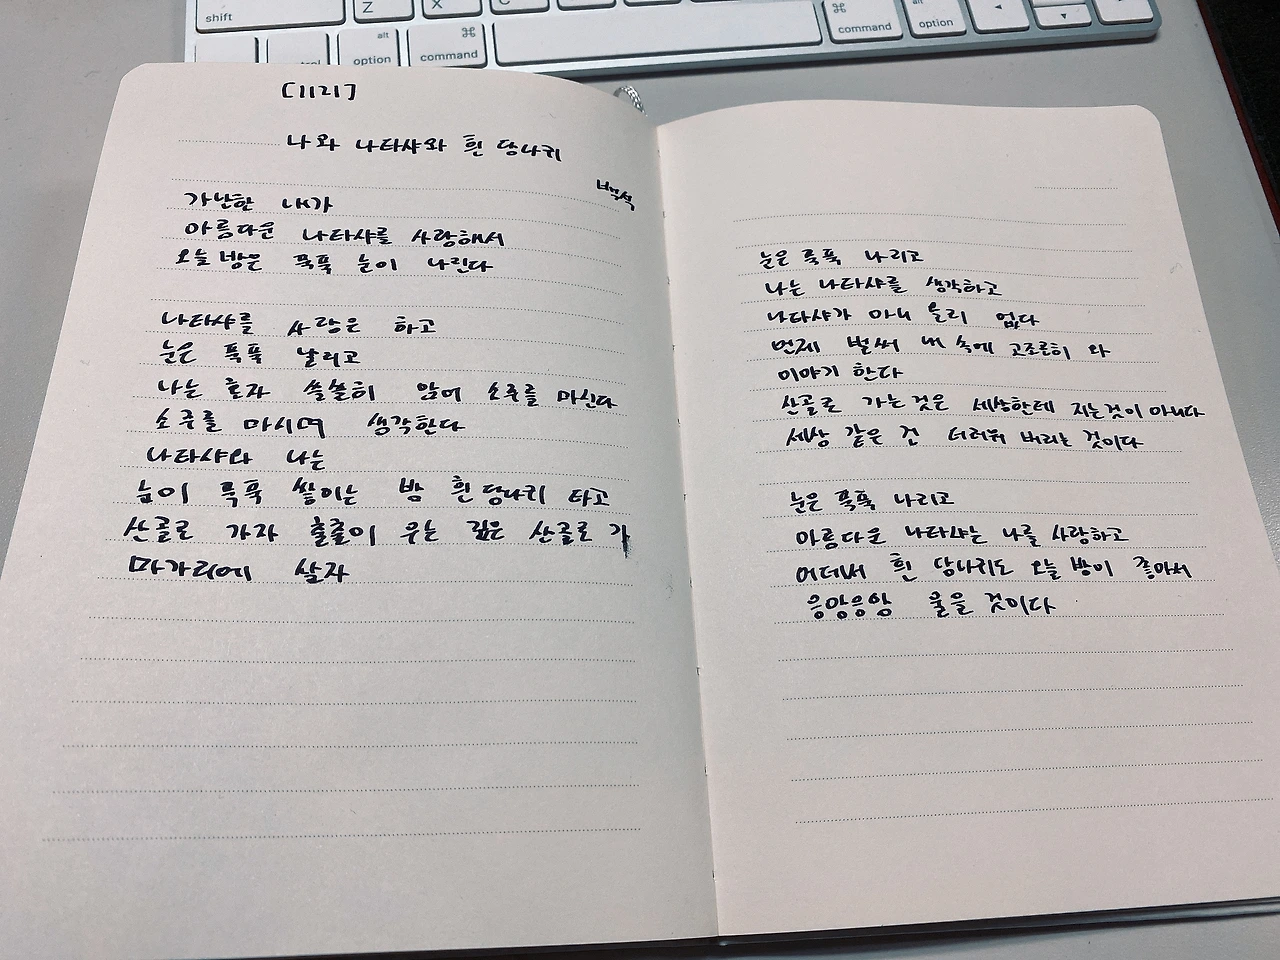 shift
Z
X
C
⌘
command
alt
option
alt
option
⌘
command
[1121]
나와 나타샤와 흰 당나귀
백석
가난한 내가
아름다운 나타샤를 사랑해서
오늘밤은 푹푹 눈이 나린다
나타샤를 사랑은 하고
눈은 푹푹 날리고
나는 혼자 쓸쓸히 앉어 소주를 마신다
소주를 마시며 생각한다
나타샤와 나는
눈이 푹푹 쌓이는 밤 흰 당나귀 타고
산골로 가자 출출이 우는 깊은 산골로 가
마가리에 살자
눈은 푹푹 나리고
나는 나타샤를 생각하고
나타샤가 아니 올리 없다
언제 벌써 내 속에 고조곤히 와
이야기 한다
산골로 가는것은 세상한테 지는것이 아니다
세상 같은 건 더러워 버리는 것이다
눈은 푹푹 나리고
아름다운 나타샤는 나를 사랑하고
어데서 흰 당나귀도 오늘 밤이 좋아서
응앙응앙 울을 것이다